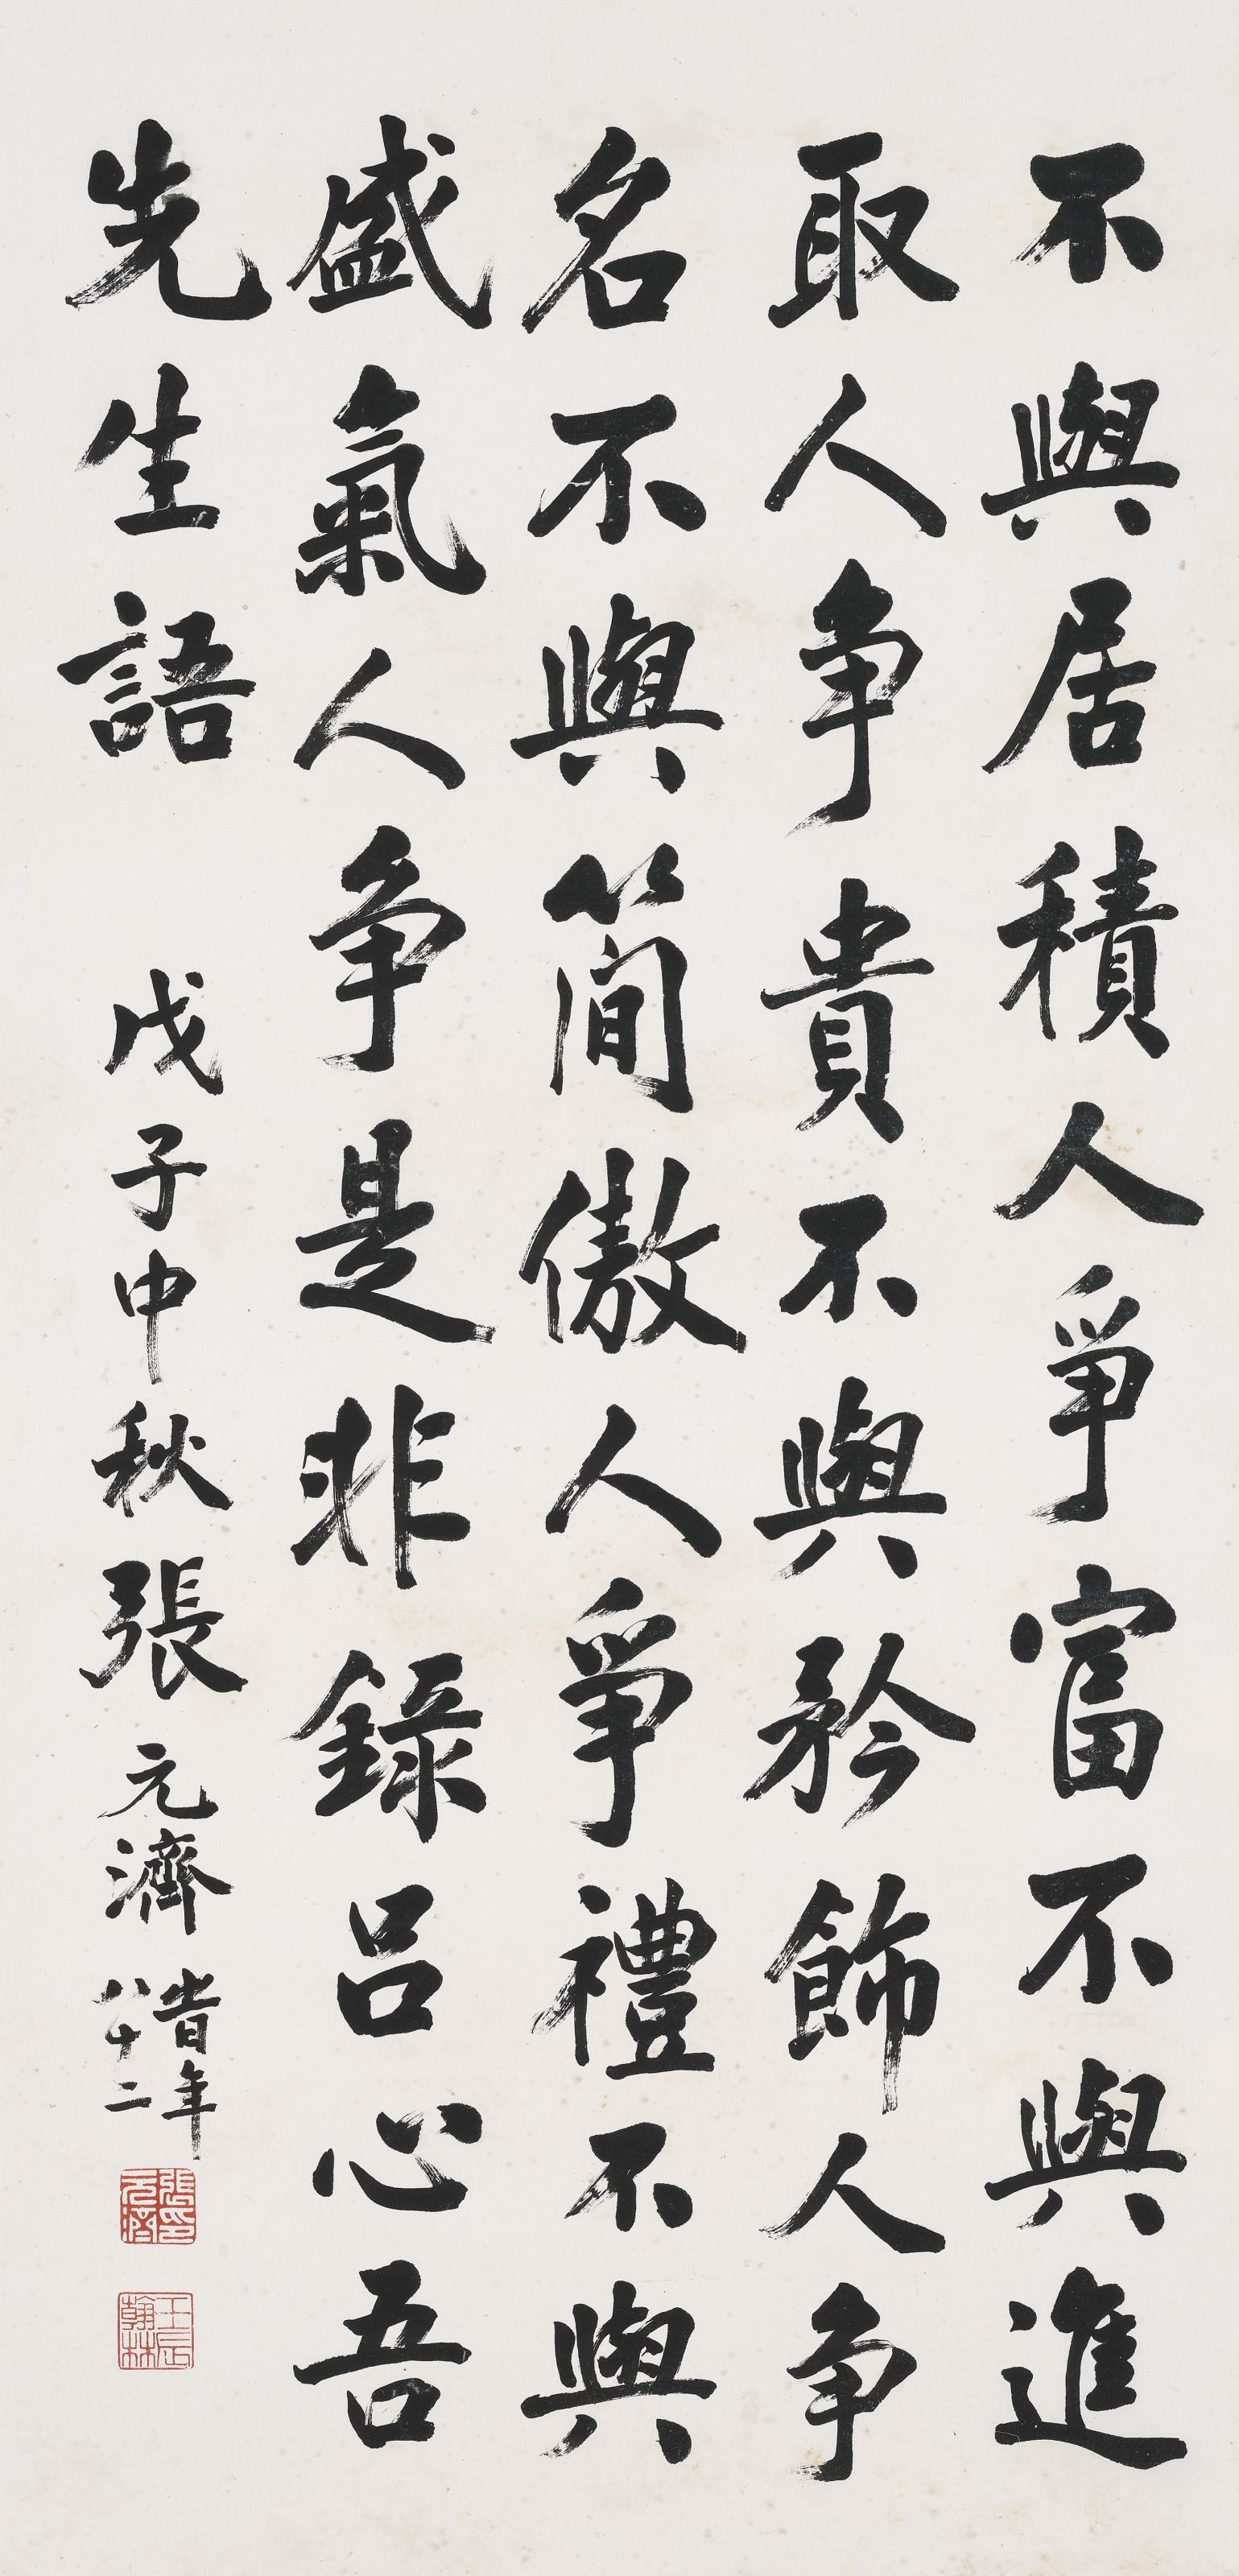 不與居積人爭富不與進
取人争貴不與矜飾人争
名不與簡傲人爭禮不與
盛氣人争是非錄呂心吾
先生語
戊子中秋張元濟
旹年
八十二
張元濟印
壬辰翰林